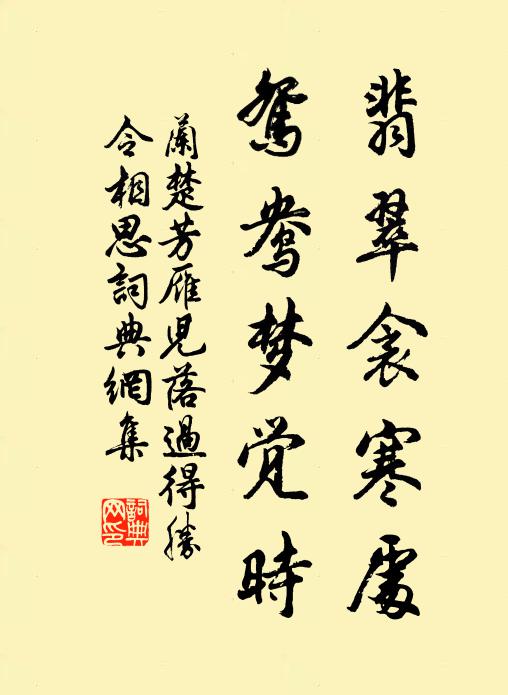 翡翠衾寒處
鴛鴦梦觉時
蘭楚芳雁児落過得勝
令相思詞典網集
詞典
网印